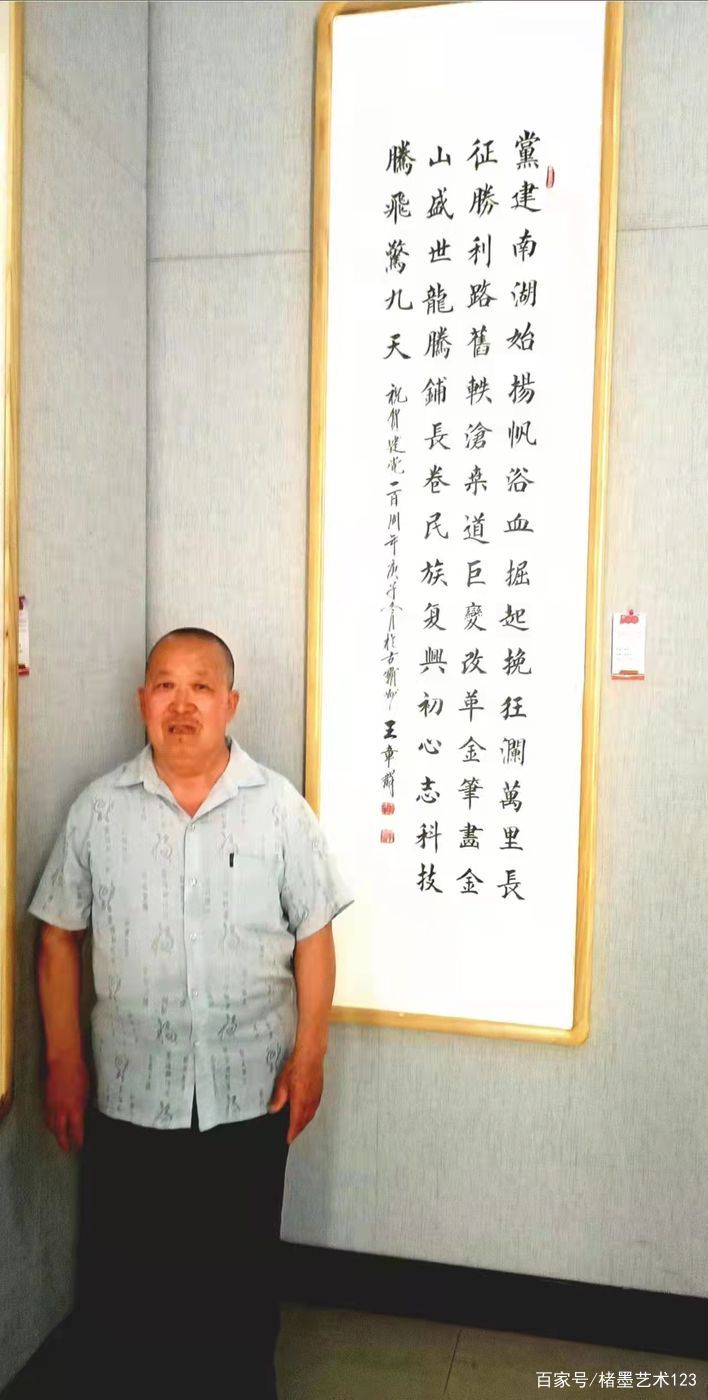 黨建南湖始揚帆浴血掘起挽狂瀾萬里長
征勝利路舊軼滄桒道巨變改革金筆畵金
山盛世龍騰鋪長卷民族复興初心志科技
騰飛驚九天
祝賀建党一百周年庚子冬月於古霸州
王章
百家号/楮墨艺术123